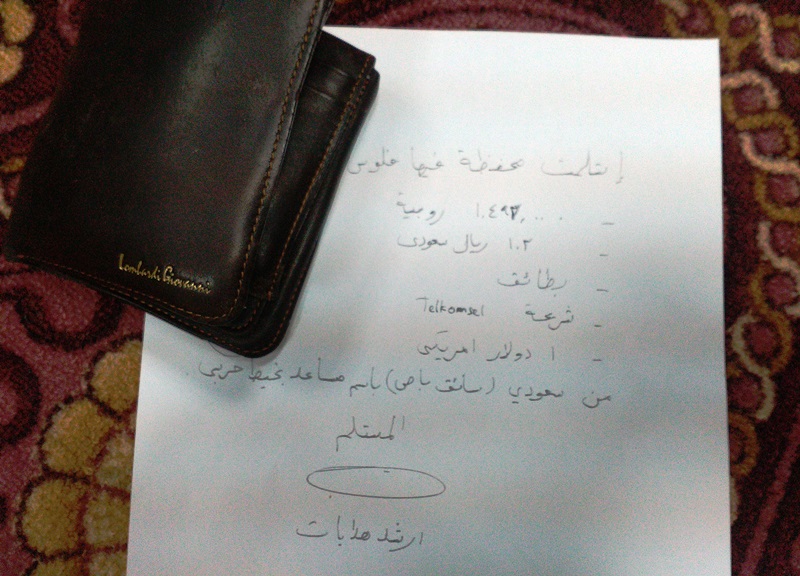 Lombardi Giovanni
إستلمت محفظة فيها فلوس
- ١.٤٩٣,٠٠٠ روبية
- ١٠٢ ريال سعودى
- بطائق
- شريحة Telkomsel
- ١ دولار امريكى
من سعودي (سائق باص) باسم مساعد بخيط حربى
المستلم
ارشد هدايات